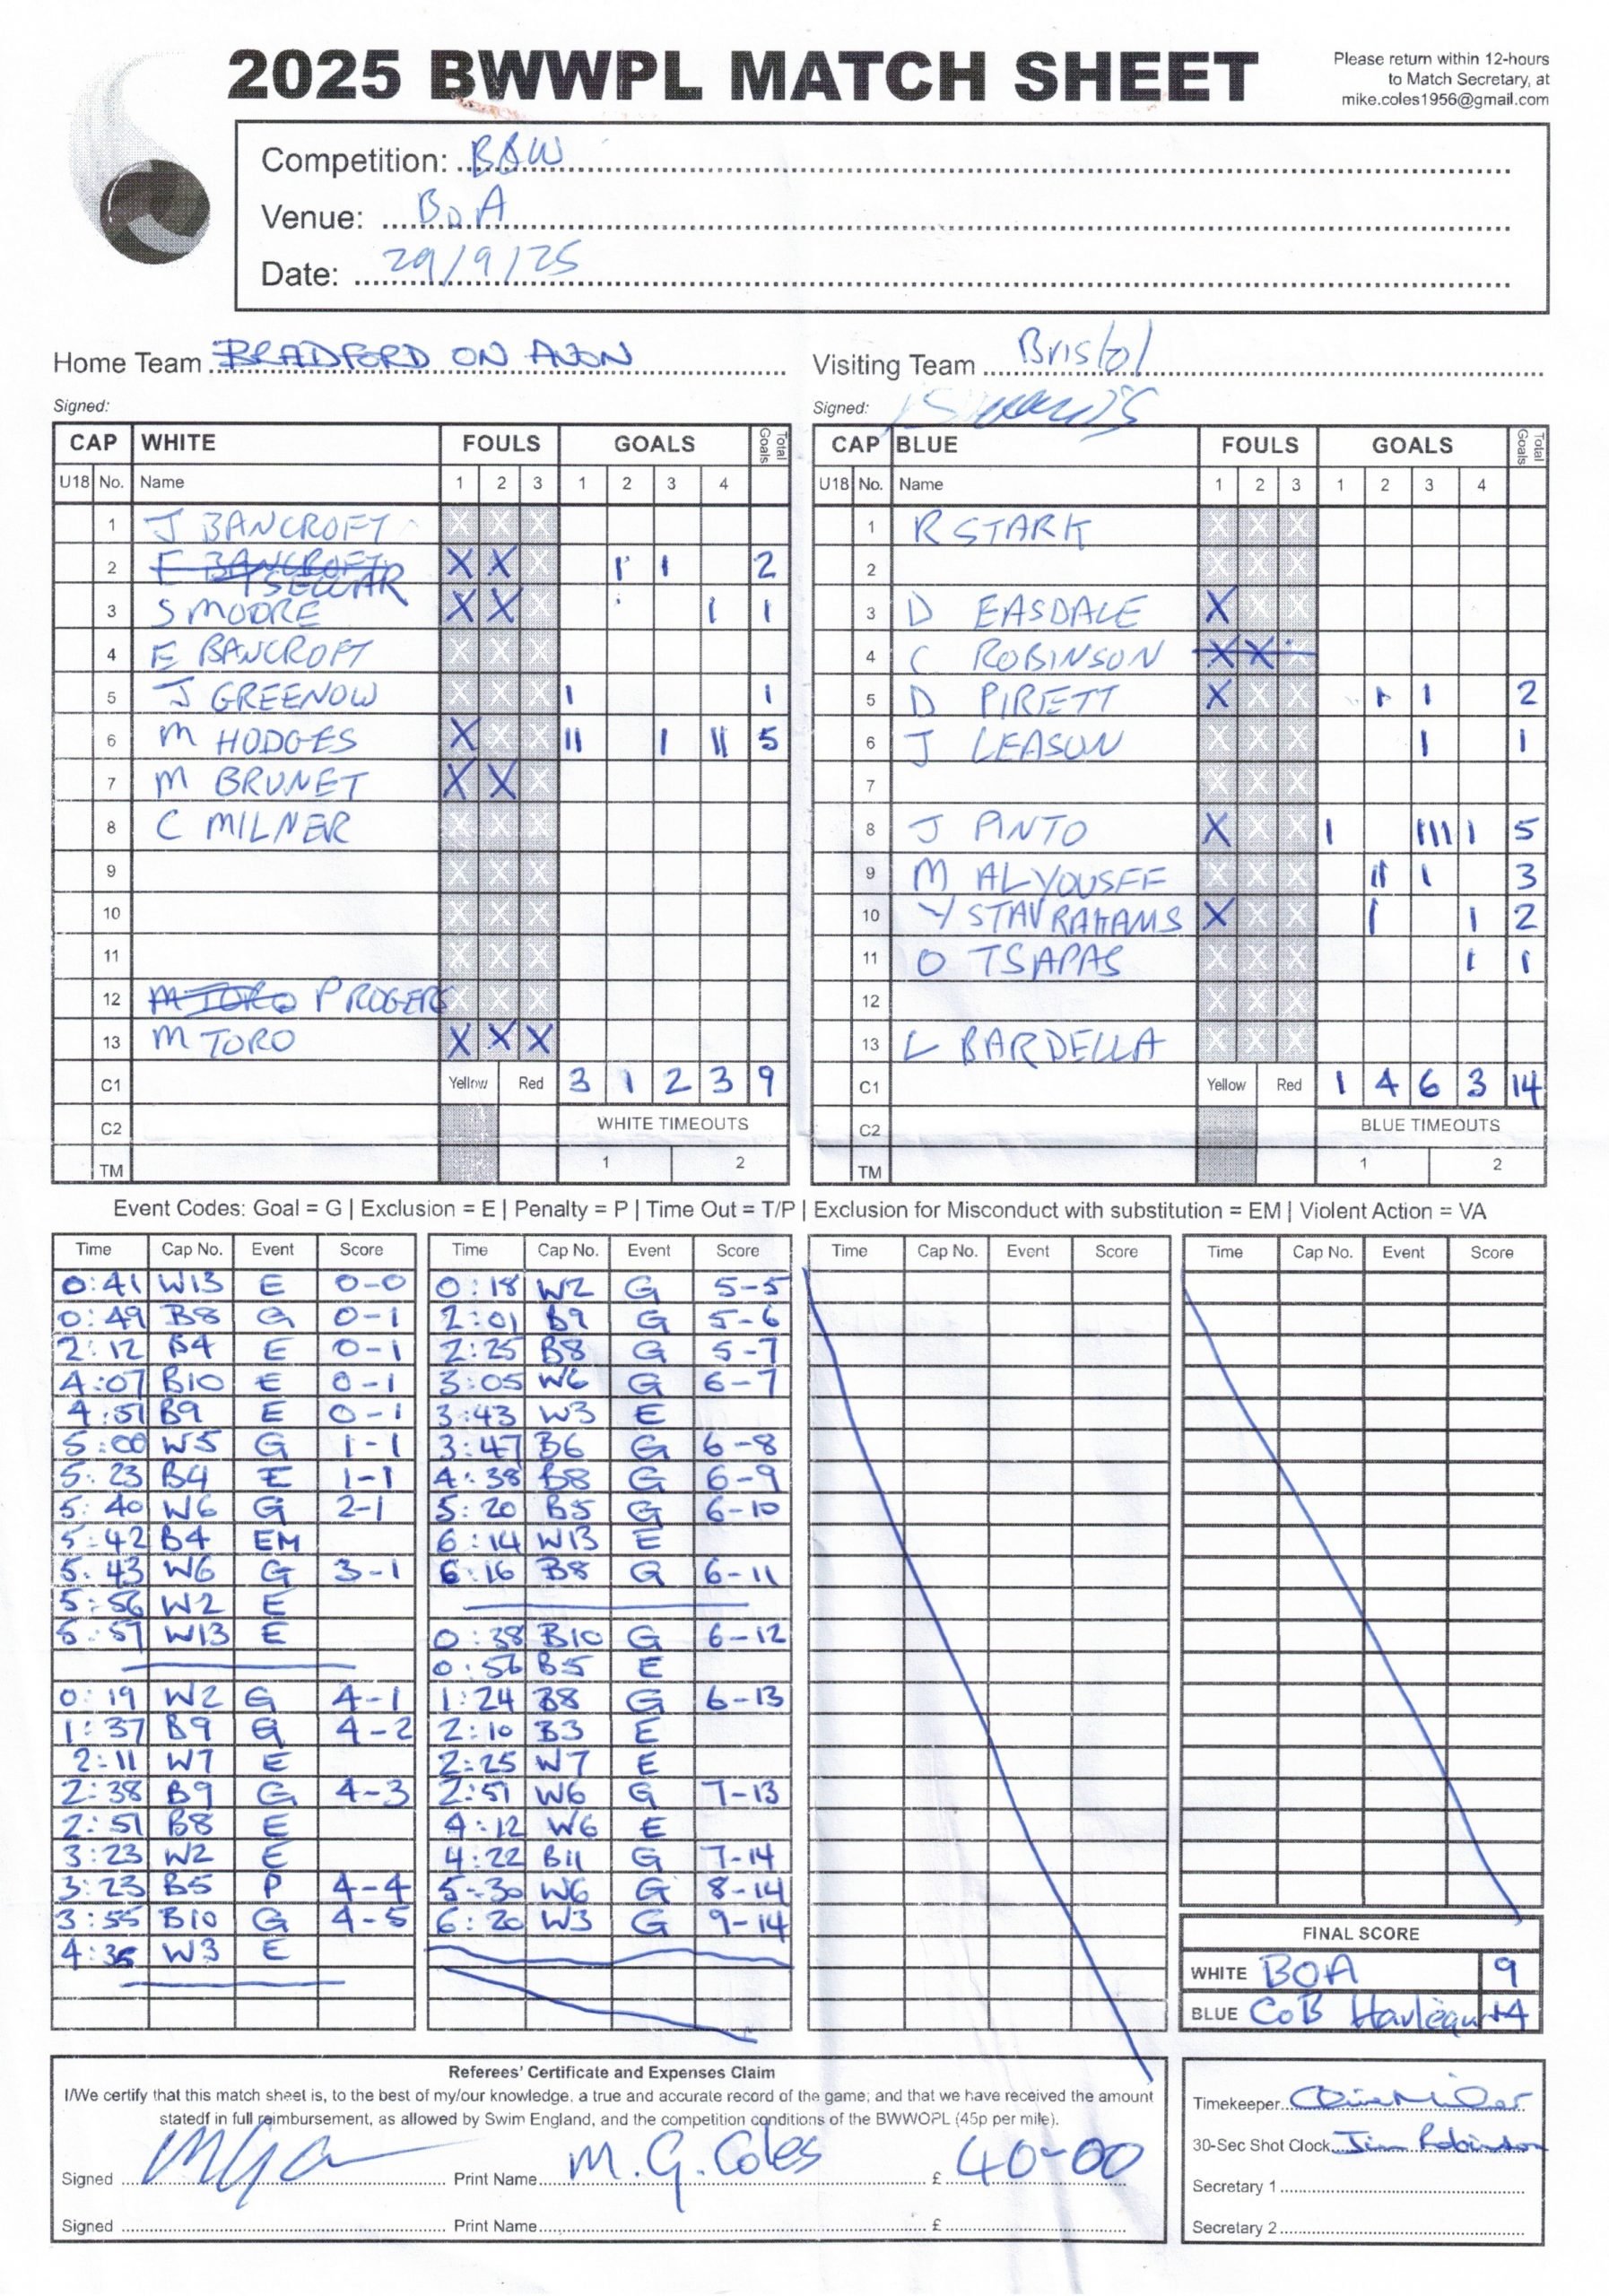 2025 BWWPL MATCH SHEET
Please return within 12-hours
to Match Secretary, at
mike.coles1956@gmail.com
Competition: B&W
Venue: BoA
Date: 29/9/25
Home Team BRADFORD ON AVON
Visiting Team Bristol
Signed:
Signed:
CAP WHITE FOULS GOALS Total Goals
U18 No. Name 1 2 3 1 2 3 4
1 J BANCROFT X X X
2 F BANCROFT T SELLAR X X X I I 2
3 S MOORE X X X I 1
4 E BANCROFT X X X
5 J GREENOW X X X I 1
6 M HODGES X X X II I II 5
7 M BRUNET X X X
8 C MILNER X X X
9 X X X
10 X X X
11 X X X
12 M TORO P ROGERS X X X
13 M TORO X X X
C1 Yellow Red 3 1 2 3 9
C2 WHITE TIMEOUTS
TM 1 2
CAP BLUE FOULS GOALS Total Goals
U18 No. Name 1 2 3 1 2 3 4
1 R STARK X X X
2 X X X
3 D EASDALE X X X
4 C ROBINSON X X X
5 D PIRETT X X X I I 2
6 J LEASON X X X I 1
7 X X X
8 J PINTO X X X I IIII I 5
9 M ALYOUSEF X X X II I 3
10 Y STAVRAHAMS X X X I I 2
11 O TSAPAS X X X I 1
12 X X X
13 L BARDELLA X X X
C1 Yellow Red 1 4 6 3 14
C2 BLUE TIMEOUTS
TM 1 2
Event Codes: Goal = G | Exclusion = E | Penalty = P | Time Out = T/P | Exclusion for Misconduct with substitution = EM | Violent Action = VA
Time Cap No. Event Score
0:41 W13 E 0-0
0:49 B8 G 0-1
2:12 B4 E 0-1
4:07 B10 E 0-1
4:51 B9 E 0-1
5:00 W5 G 1-1
5:23 B4 E 1-1
5:40 W6 G 2-1
5:42 B4 EM
5:43 W6 G 3-1
5:56 W2 E
5:59 W13 E
0:19 W2 G 4-1
1:37 B9 G 4-2
2:11 W7 E
2:38 B9 G 4-3
2:51 B8 E
3:23 W2 E
3:23 B5 P 4-4
3:55 B10 G 4-5
4:35 W3 E
Time Cap No. Event Score
0:18 W2 G 5-5
2:01 B9 G 5-6
2:25 B8 G 5-7
3:05 W6 G 6-7
3:43 W3 E
3:47 B6 G 6-8
4:38 B8 G 6-9
5:20 B5 G 6-10
6:14 W13 E
6:16 B8 G 6-11
0:38 B10 G 6-12
0:56 B5 E
1:24 B8 G 6-13
2:10 B3 E
2:25 W7 E
2:51 W6 G 7-13
4:12 W6 E
4:22 B11 G 7-14
5:30 W6 G 8-14
6:20 W3 G 9-14
Time Cap No. Event Score
Time Cap No. Event Score
FINAL SCORE
WHITE BOA 9
BLUE CoB Harlequ 14
Referees' Certificate and Expenses Claim
I/We certify that this match sheet is, to the best of my/our knowledge, a true and accurate record of the game; and that we have received the amount
statedf in full reimbursement, as allowed by Swim England, and the competition conditions of the BWWOPL (45p per mile).
Signed Print Name M.G. Coles £ 40-00
Signed Print Name £
Timekeeper
30-Sec Shot Clock Jim Robinson
Secretary 1
Secretary 2